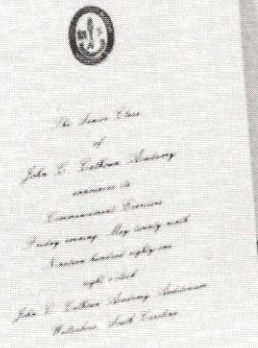 The Senior Class
of
John C. Calhoun Academy
announces its
Commencement Exercises
Friday evening, May twenty-ninth
Nineteen hundred eighty-one
eight o'clock
John C. Calhoun Academy Auditorium
Walterboro, South Carolina